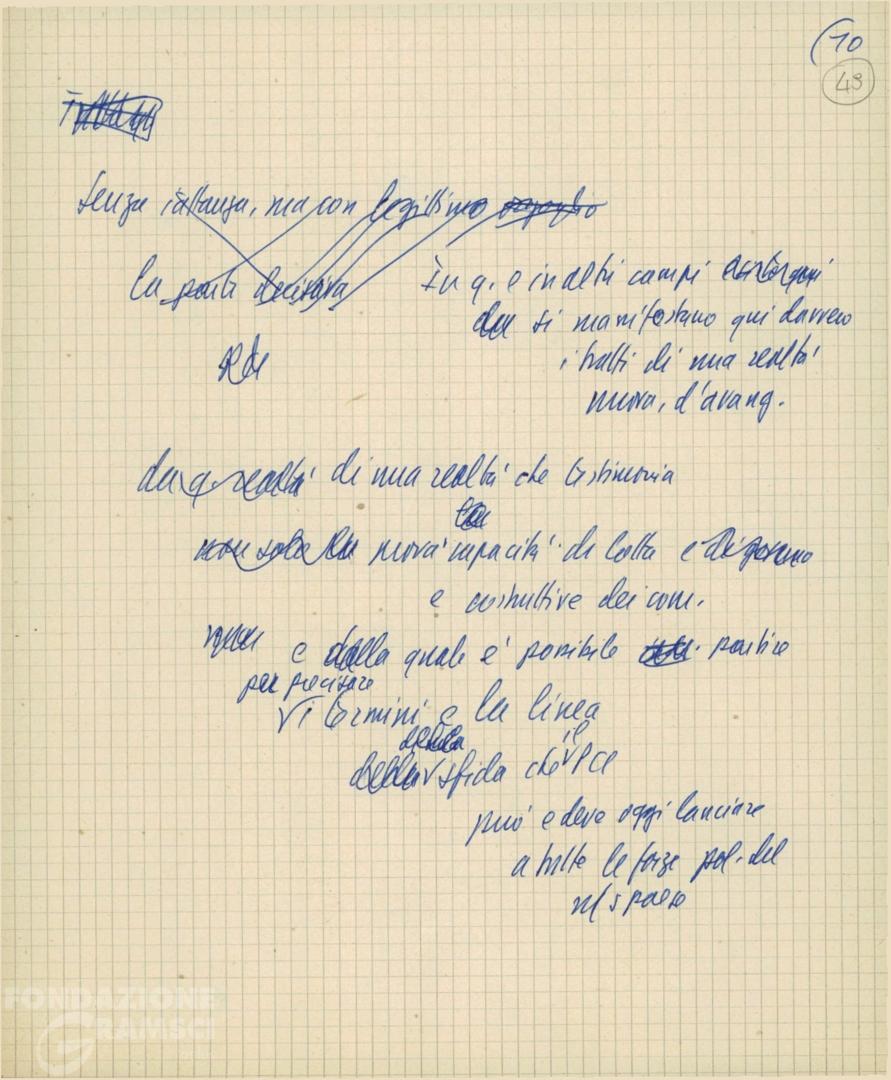 (10
49
Senza iattanza, ma con legittimo orgoglio
la parte decisiva
In q. e in altri campi
si manifestano qui davvero
i tratti di una realtà
nuova, d'avang.
da q. realtà di una realtà che testimonia
non solo la nuova capacità di lotta e di governo
e costruttive dei com.
e dalla quale è possibile partire
per precisare
i termini e la linea
della
della sfida che il PCI
può e deve oggi lanciare
a tutte le forze pol. del
n/s paese
FONDAZIONE
GRAMSCI